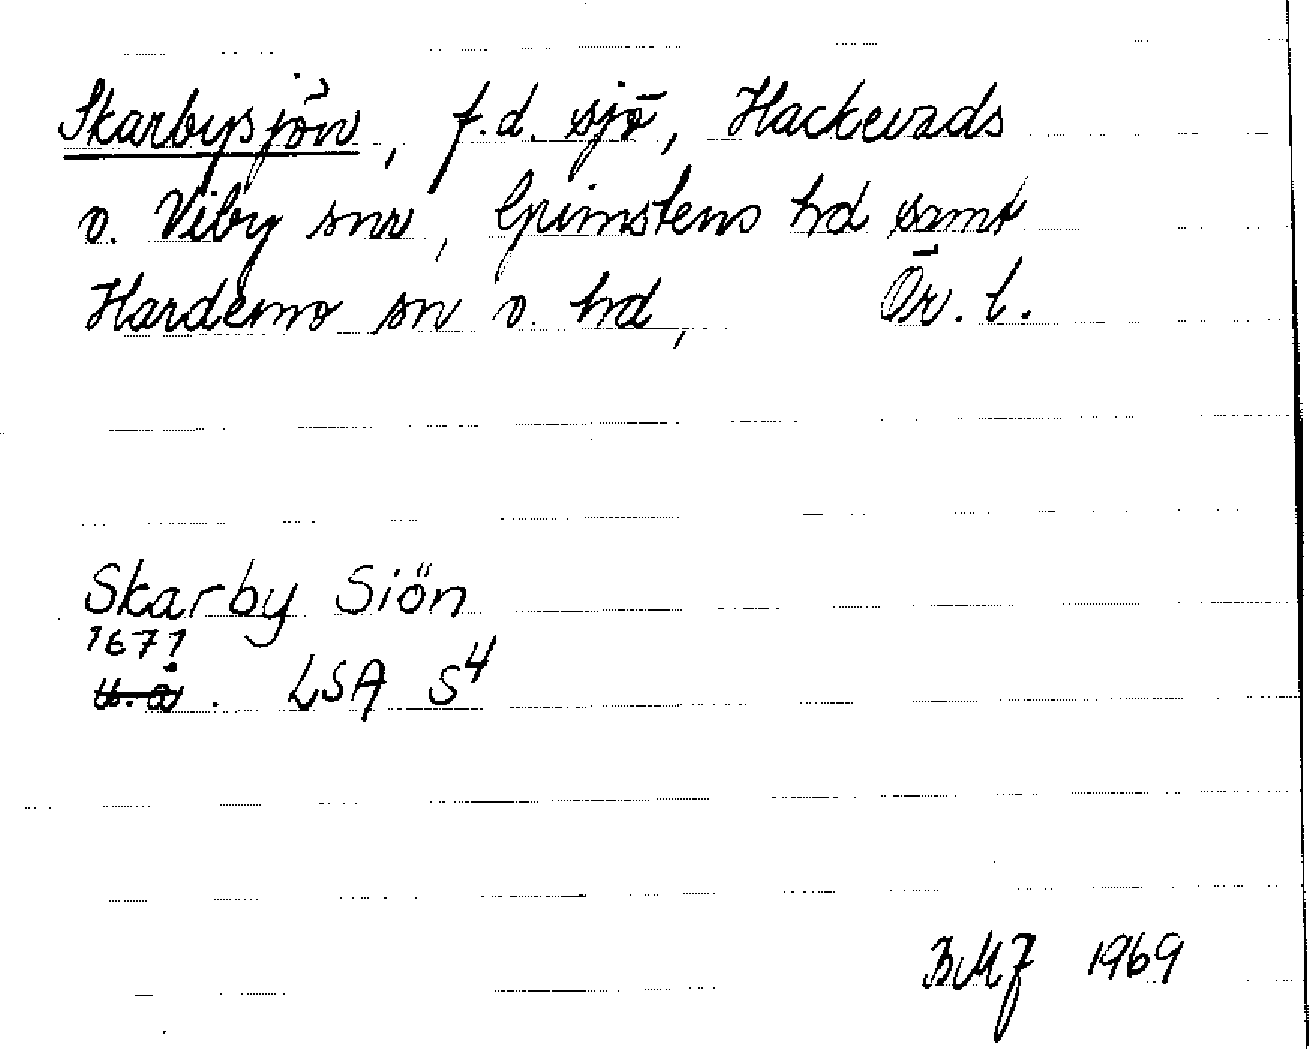 Skarbysjön, f.d. sjö, Hackvads
o. Viby snr, Grimstens hd samt
Hardemo sn o. hd, Ör. l.
Skarby Siön
1671
u.å. LSA S⁴
BMJ 1969